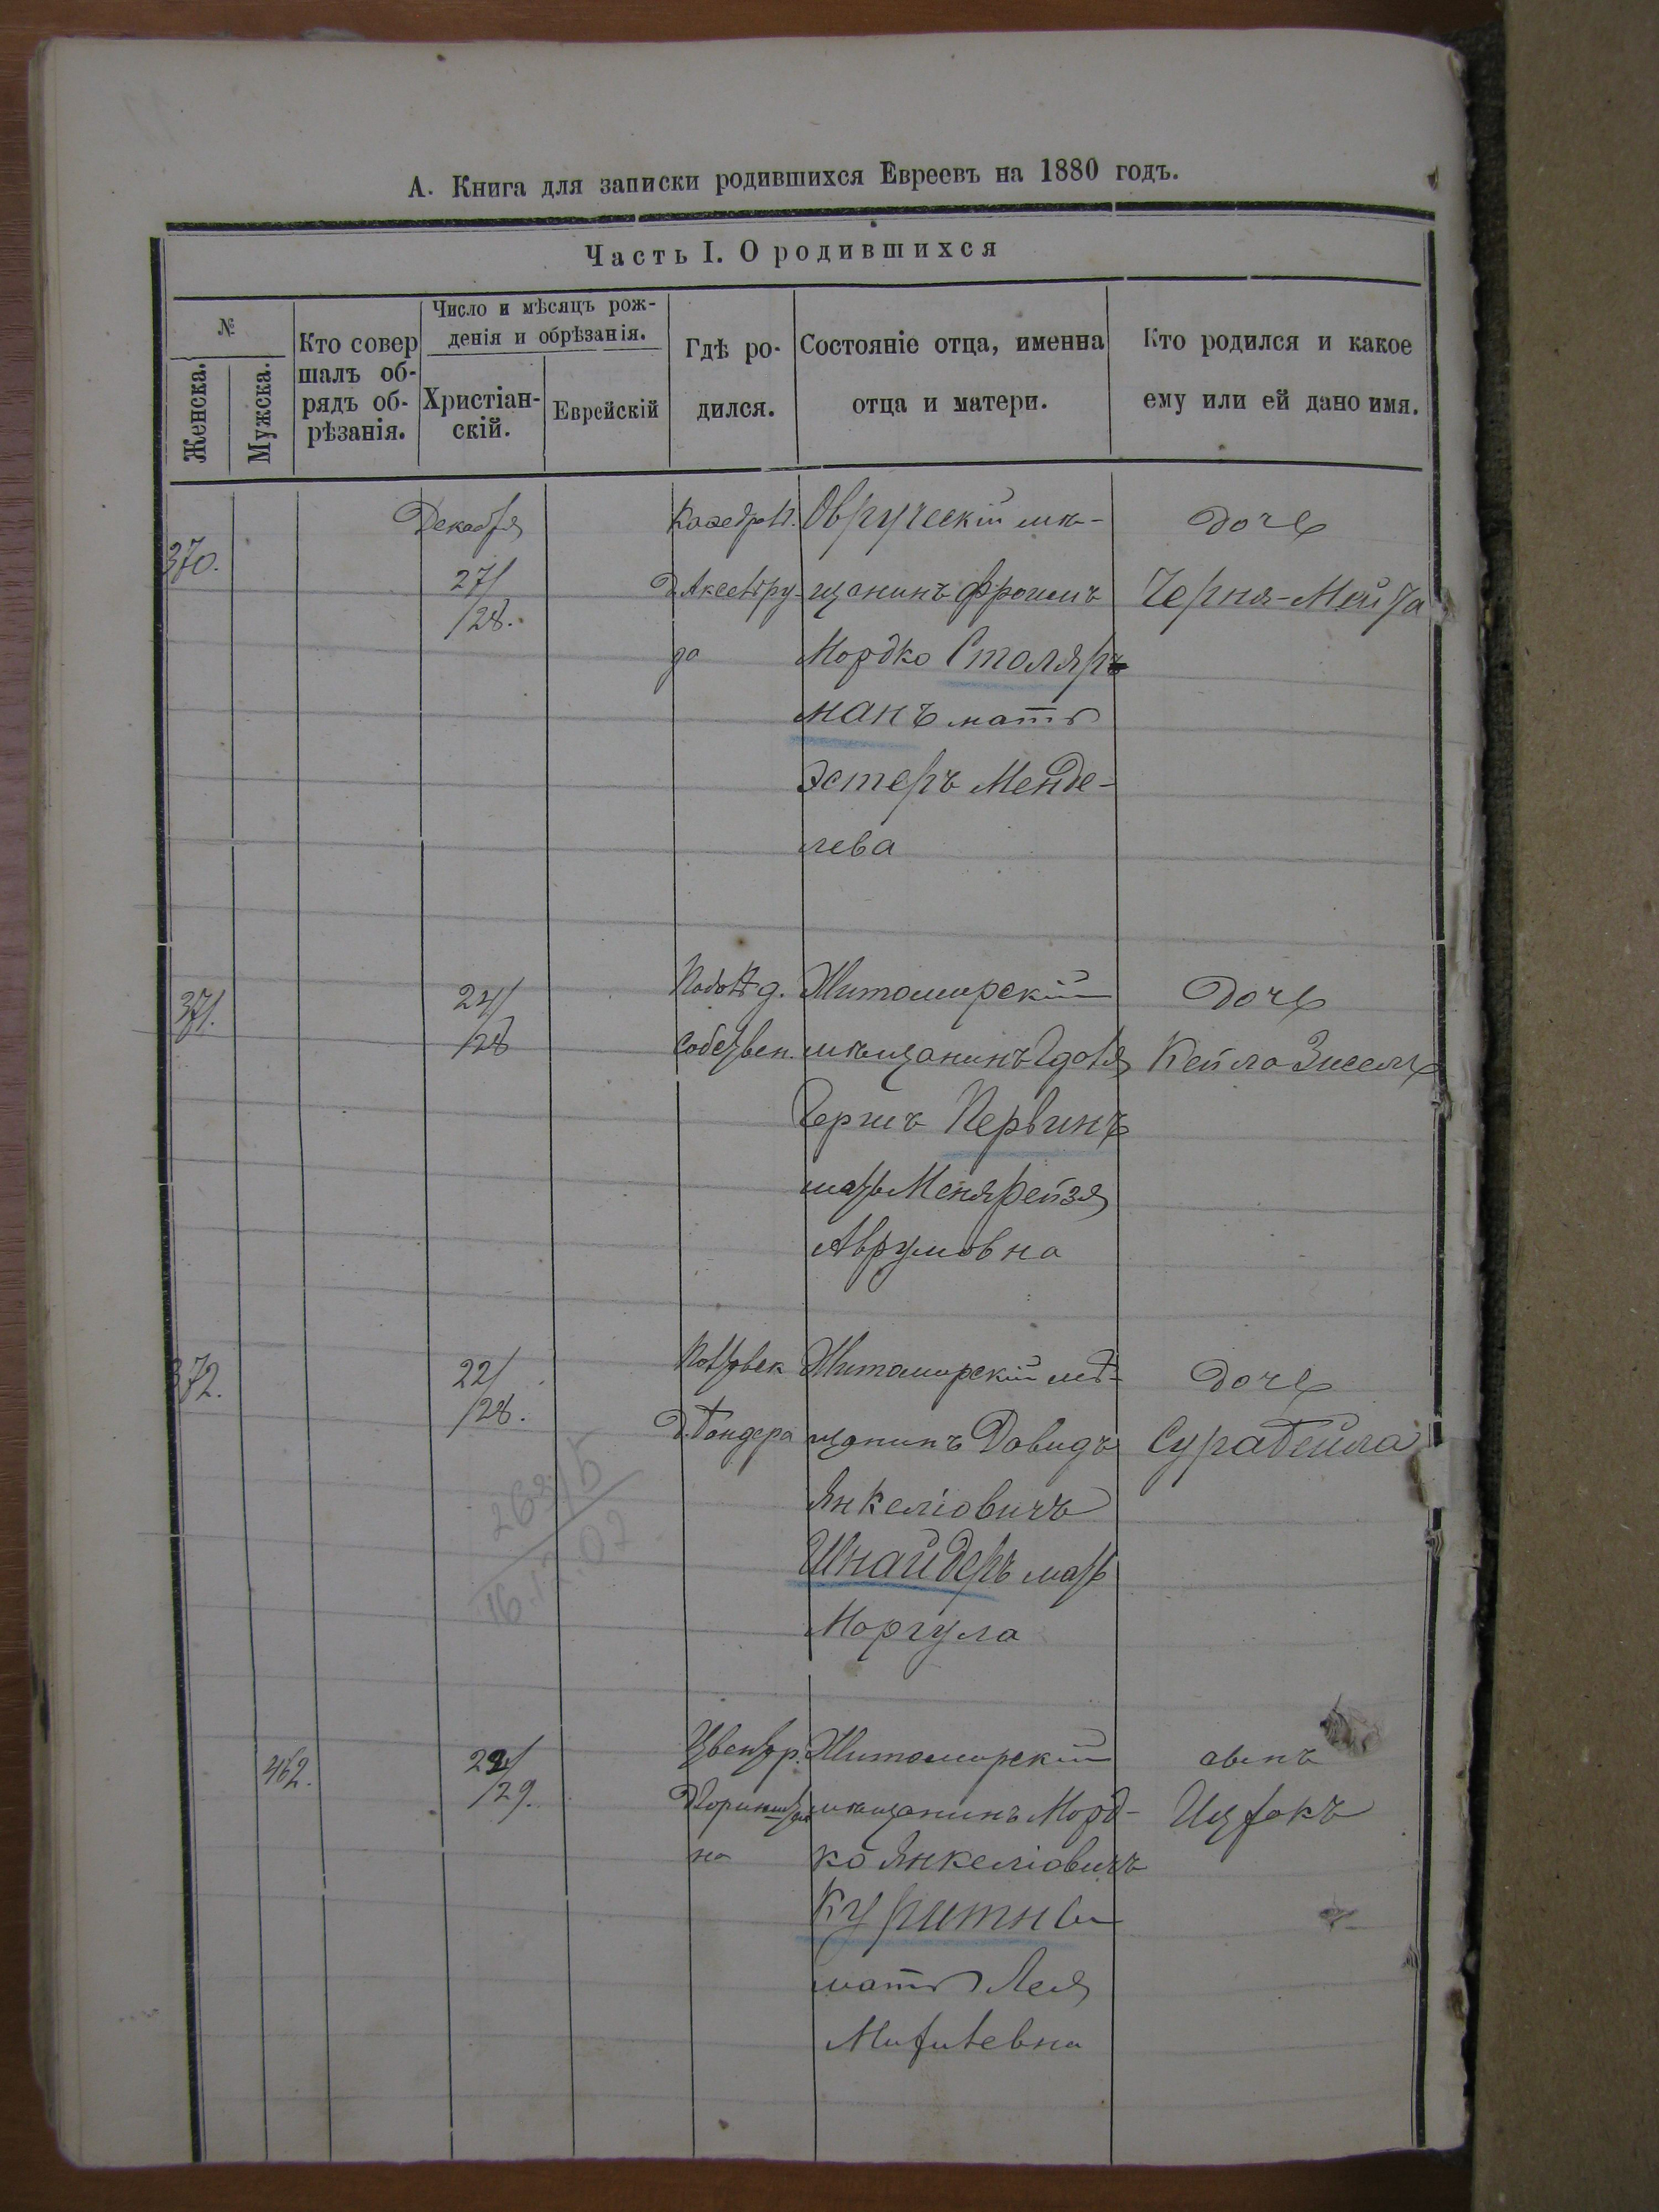 А. Книга для записки родившихся Евреевъ на 1880 годъ.
Часть I. О родившихся
№
Женска.
Мужска.
Кто совер
шалъ об-
рядъ об-
рѣзанія.
Число и мѣсяцъ рож-
денія и обрѣзанія.
Христіан-
скій.
Еврейскій
Гдѣ ро-
дился.
Состояніе отца, именна
отца и матери.
Кто родился и какое
ему или ей дано имя.
370.
Декабря
27/
/28.
Овручскій мѣ-
щанинъ Фроимъ
Мордко Столяръ
манъ мать
Эстеръ Менде-
лева
дочь
Черня-Мейта
371.
24/
/28
собствен.
Житомирскій
мѣщанинъ
Гершъ Первинъ
мать Меня рейзя
Аврумовна
дочь
Кейла Зисель
372.
22/
/28.
Житомирскій мѣ-
щанинъ Довидъ
Янкеліовичъ
Шнайдеръ мать
Маргула
дочь
Сура Бейла
16.12.02
462.
22/
/29.
на
Житомирскій
мѣщанинъ Морд-
ко Янкеліовичъ
мать Лея
сынъ
Ицхокъ